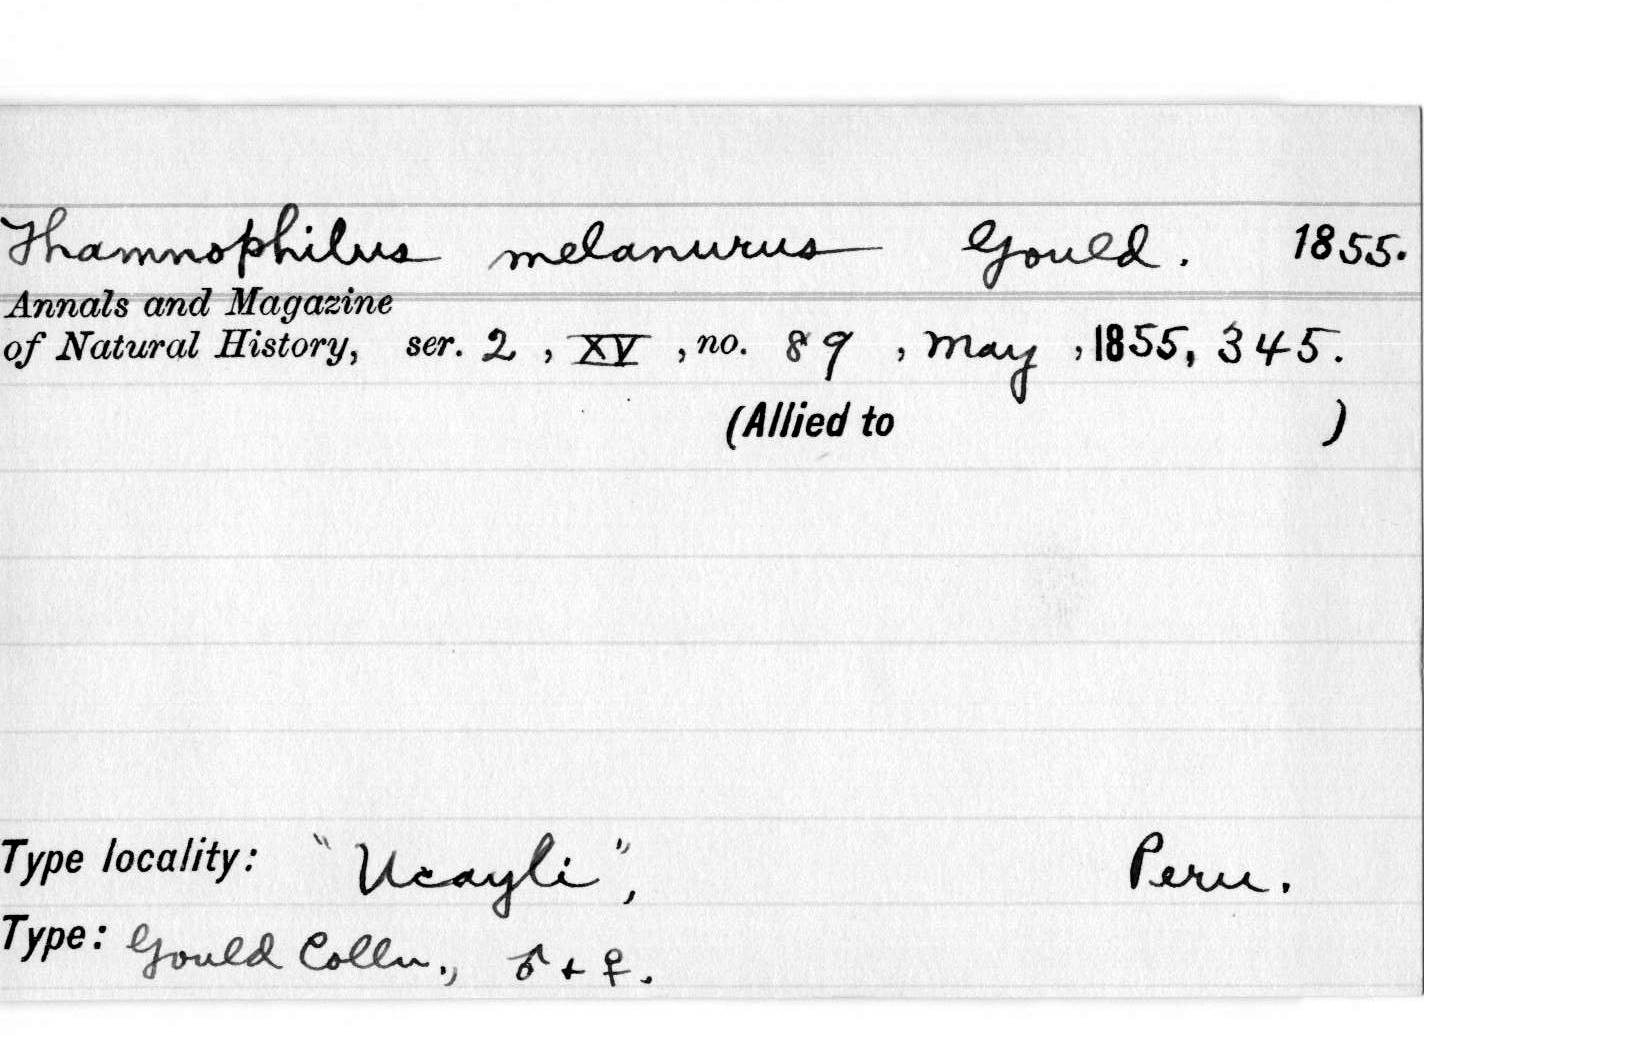 Thamnophilus melanurus Gould. 1855.
Annals and Magazine
of Natural History, ser. 2, XV, no. 89, May, 1855, 345.
(Allied to )
Type locality: "Ucayli", Peru.
Type: Gould Colln., ♂ + ♀.